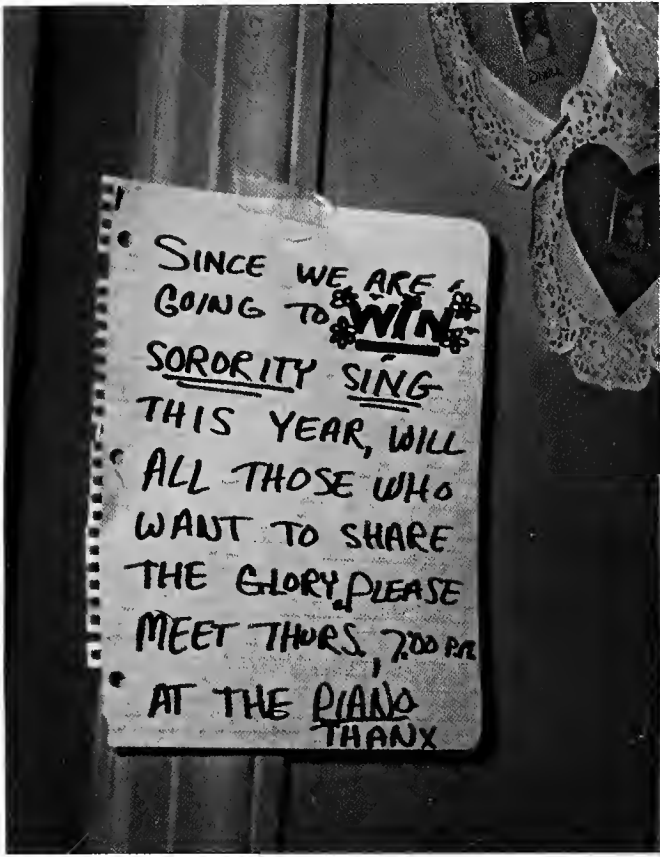 SINCE WE ARE
GOING TO WIN
SORORITY SING
THIS YEAR, WILL
ALL THOSE WHO
WANT TO SHARE
THE GLORY PLEASE
MEET THURS, 7:00 P.M.
AT THE PIANO
THANX